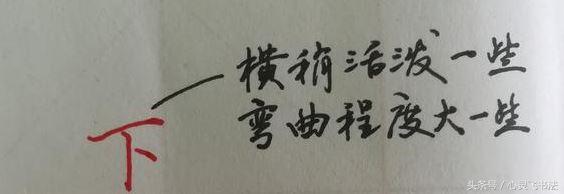 横稍活泼一些
弯曲程度大一些
下
头条号 / 心灵飞书法